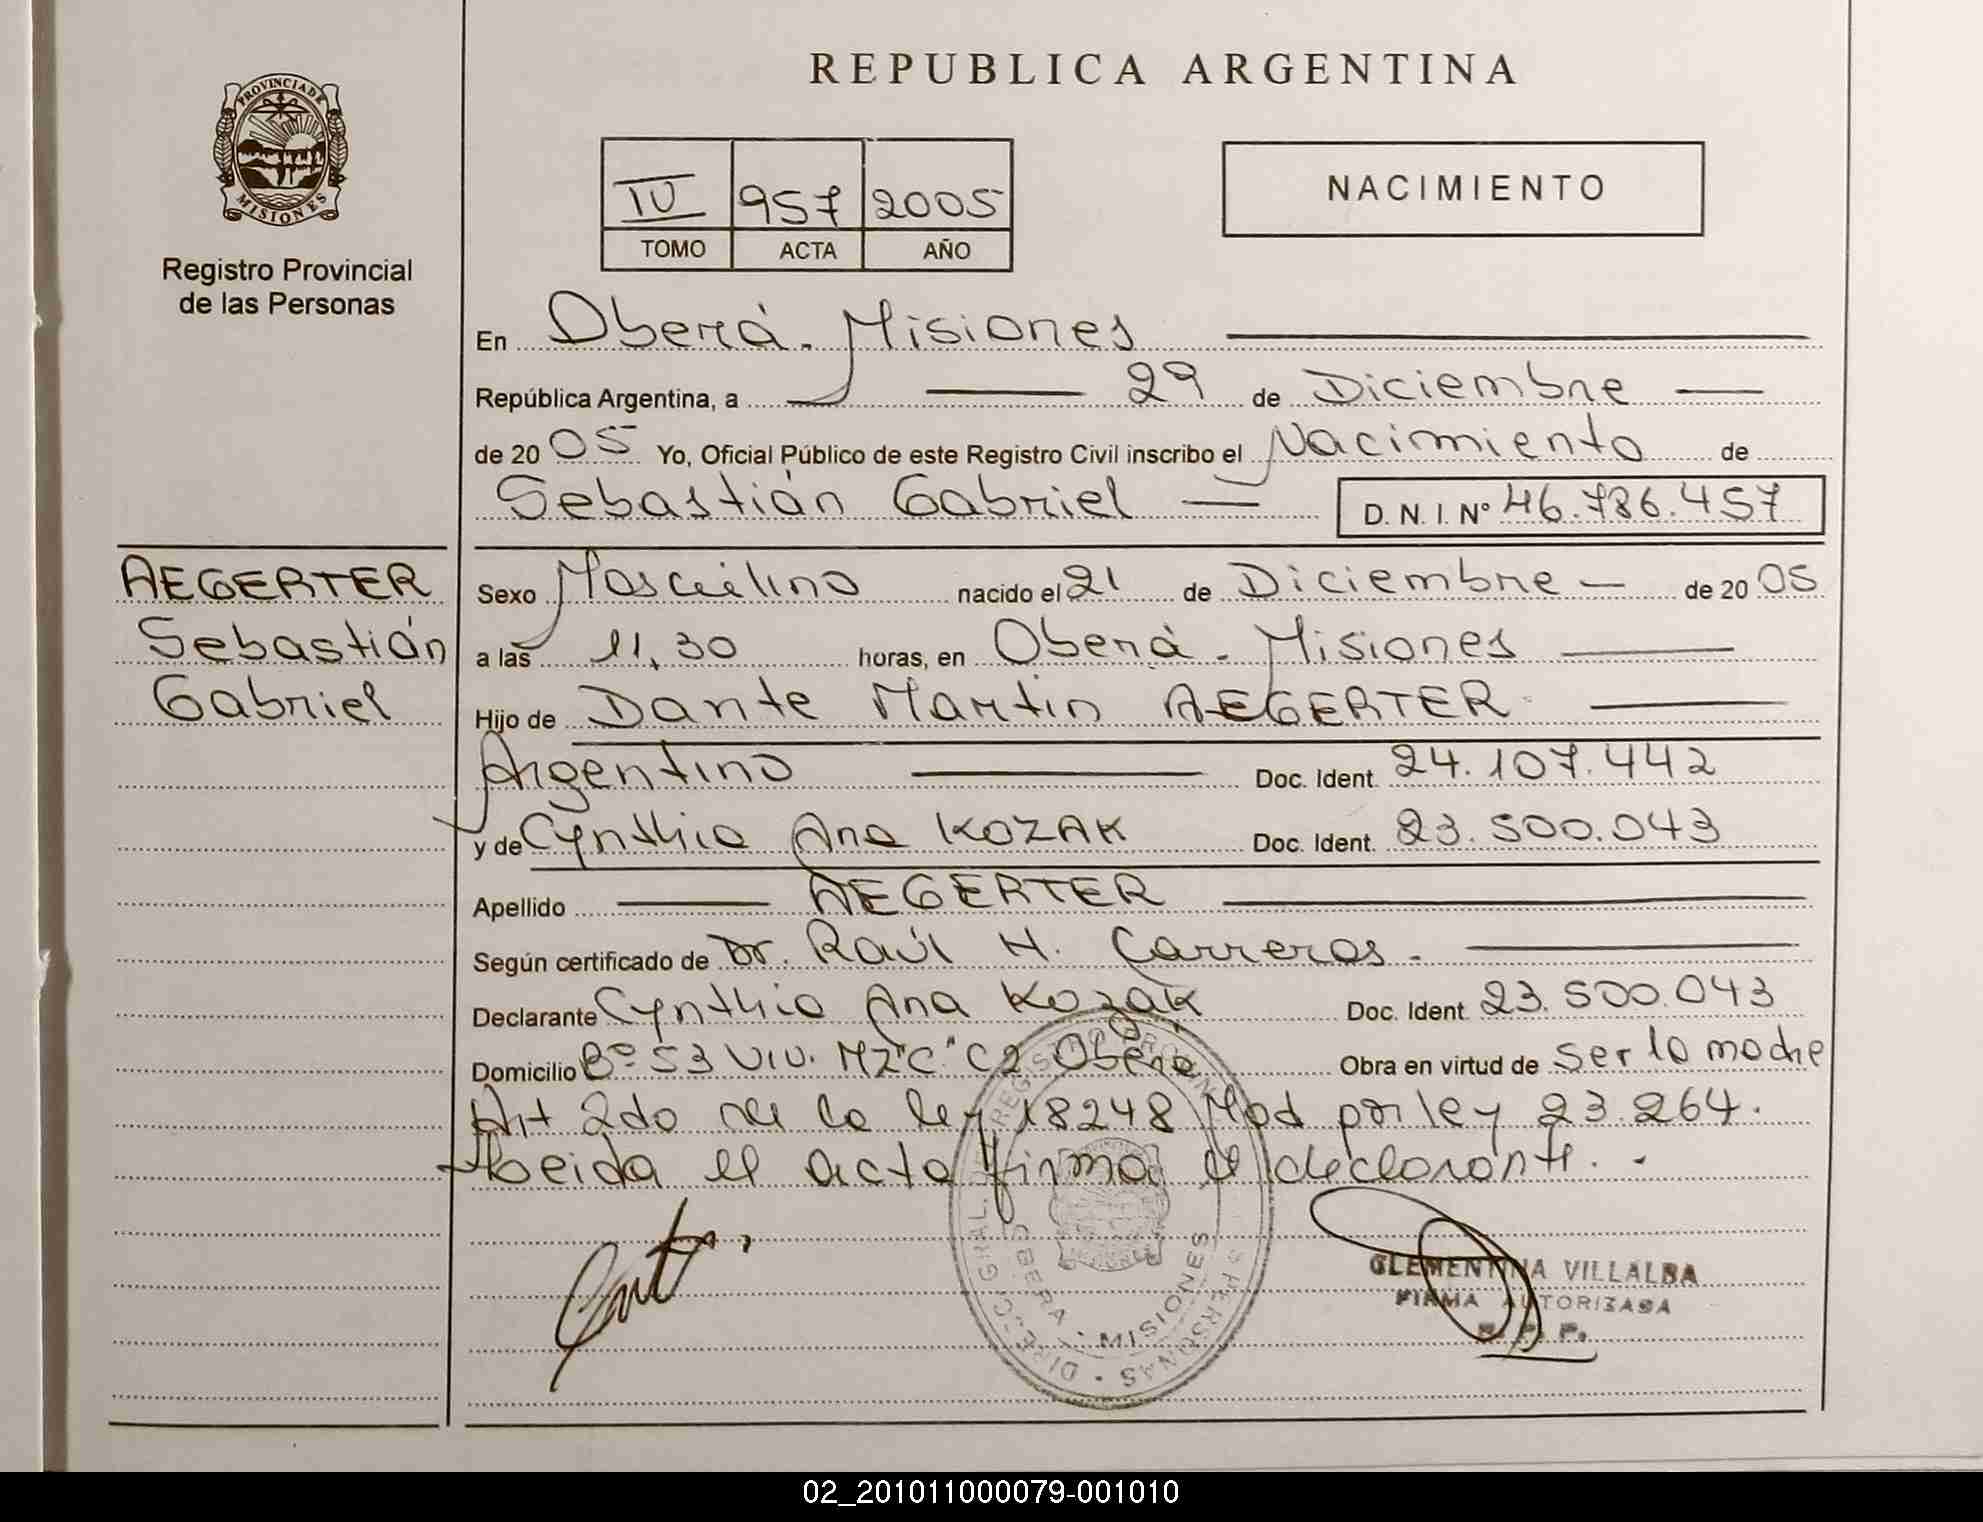 REPUBLICA ARGENTINA
PROVINCIA DE
MISIONES
Registro Provincial
de las Personas
IV 957 2005
TOMO ACTA AÑO
NACIMIENTO
En Oberá. Misiones
República Argentina, a 29 de Diciembre
de 20 05 Yo, Oficial Público de este Registro Civil inscribo el Nacimiento de
Sebastián Gabriel D. N. I. Nº 46.786.457
AEGERTER
Sebastián
Gabriel
Sexo Masculino nacido el 21 de Diciembre de 20 05
a las 11,30 horas, en Oberá. Misiones
Hijo de Dante Martin AEGERTER
Argentino Doc. Ident. 24.107.442
y de Cynthia Ana KOZAK Doc. Ident. 23.500.043
Apellido AEGERTER
Según certificado de Dr. Raúl H. Carreras.
Declarante Cynthia Ana Kozak Doc. Ident 23.500.043
Domicilio Bº 53 Viv. Mz "C" C2 Oberá Obra en virtud de ser la madre
Art 2do de la ley 18248 Mod por ley 23.264.
Leida el acta firma el declarante.
DIRECC. GRAL. DEL REGISTRO PROVINCIAL PERSONAS
OBERA - MISIONES
CLEMENTINA VILLALBA
FIRMA AUTORIZADA
R. P. P.
02_201011000079-001010